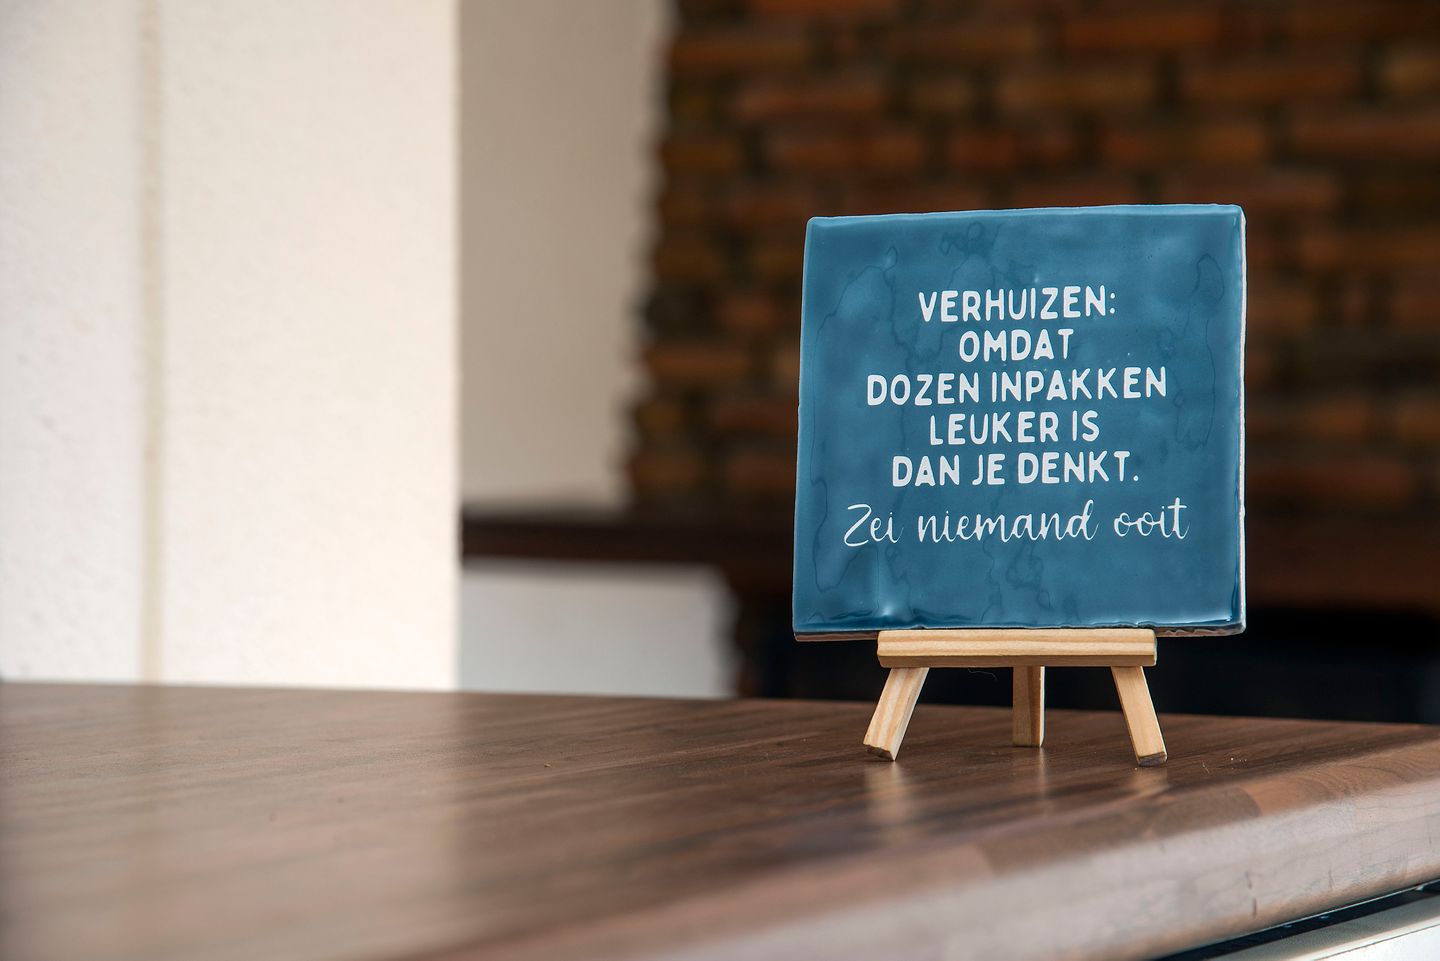 VERHUIZEN:
OMDAT
DOZEN INPAKKEN
LEUKER IS
DAN JE DENKT.
Zei niemand ooit